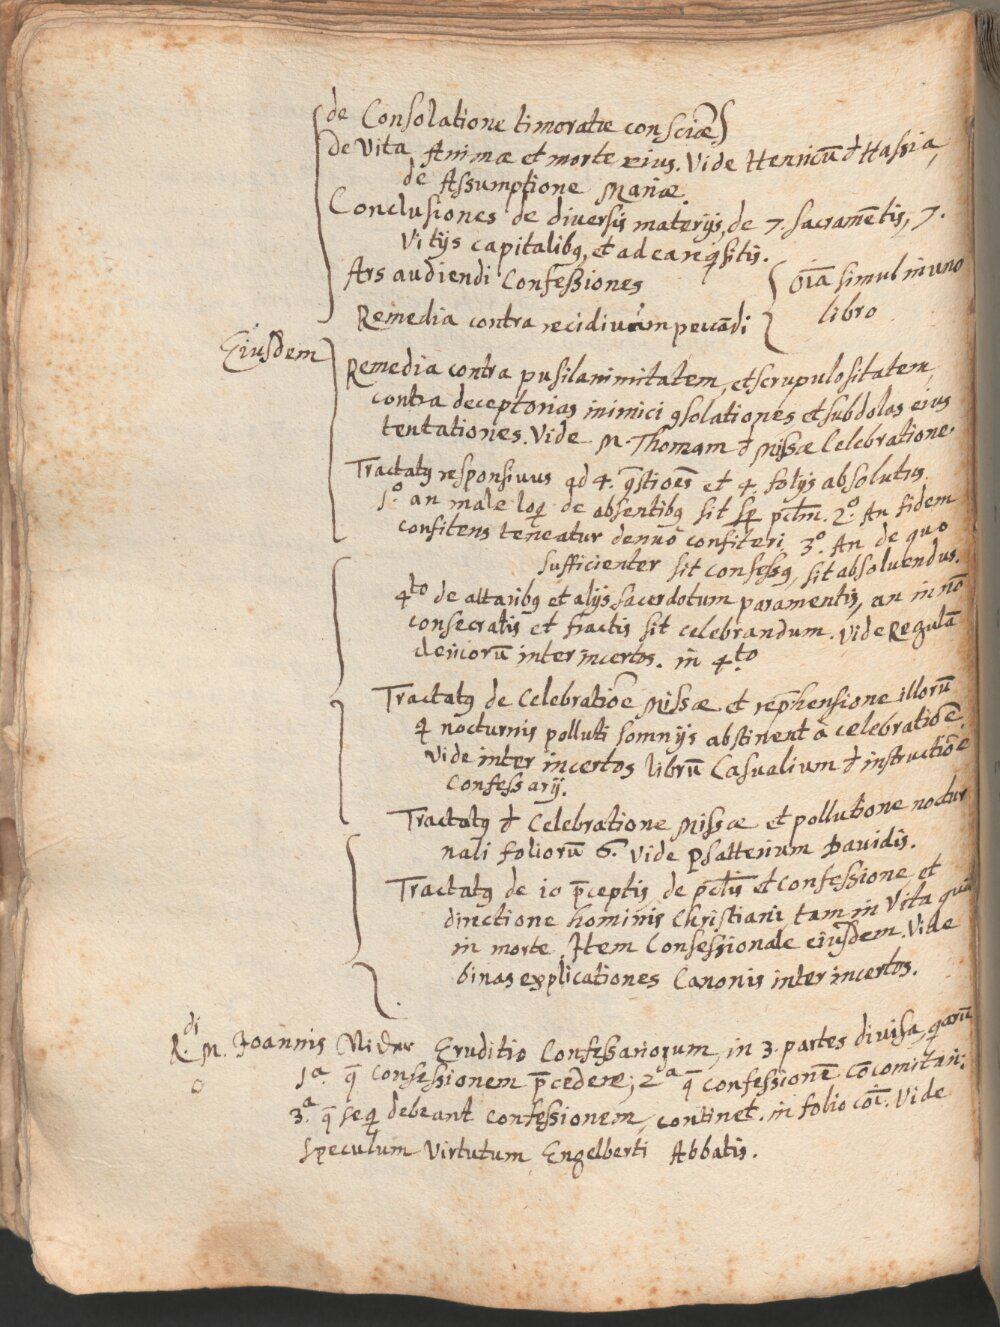 de Consolatione timoratæ consciæ
de Vita Animæ et morte eius. Vide Henricū đ Hassia,
de Assumptione Mariæ.
Conclusiones de diversis materijs, de 7. sacramētis, 7.
Vitijs capitalibꝫ, et ad ea reqͥsitis.
Ars audiendi Confessiones
oīa simul in uno
libro
Remedia contra recidivam peccādi
Eiusdem
Remedia contra pusilanimitatem, et scrupulositatem,
contra deceptorias inimici ꝯsolationes et subdolas eius
tentationes. Vide M. Thomam đ Missæ Celebratione.
Tractatꝰ responsivus ad 4. q̄stiōes et 4. folijs absolutus.
1.º an male loqͥ de absentibꝫ sit sp̄ pctm̄. 2.º An fidem
confitens teneatur denuò confiteri 3.º An de quo
sufficienter sit confessꝰ, sit absolvendus.
4.to de altaribꝫ et alijs sacerdotum paramentis, an in nō
consecratis et fractis sit celebrandum. Vide Regulā
clericorū inter incertos. in 4.to
Tractatꝰ de Celebratiōe Missæ et rep̄hensione illorū
qͥ nocturnis polluti somnijs abstinent à celebratiōe.
Vide inter incertos librū Casualium đ instructiōe
Confessarij.
Tractatꝰ đ Celebratione Missæ et pollutione noctur
nali foliorū 6. Vide Psalterium Davidis.
Tractatꝰ de 10 p̄ceptis de pctis̄ et Confessione et
directione hominis Christiani tam in Vita quā
in morte. Item Confessionale eiusdem. Vide
binas explicationes Canonis inter incertos.
R.di M. Joannis Nider Eruditio Confessariorum, in 3. partes divisa, quarū
1.ª q̄ Confessionem p̄cedere; 2.ª q̄ confessionē cōcomitari;
3.ª q̄ seqͥ debeant confessionem, continet. in folio cōi. Vide
speculum Virtutum Engelberti Abbatis.